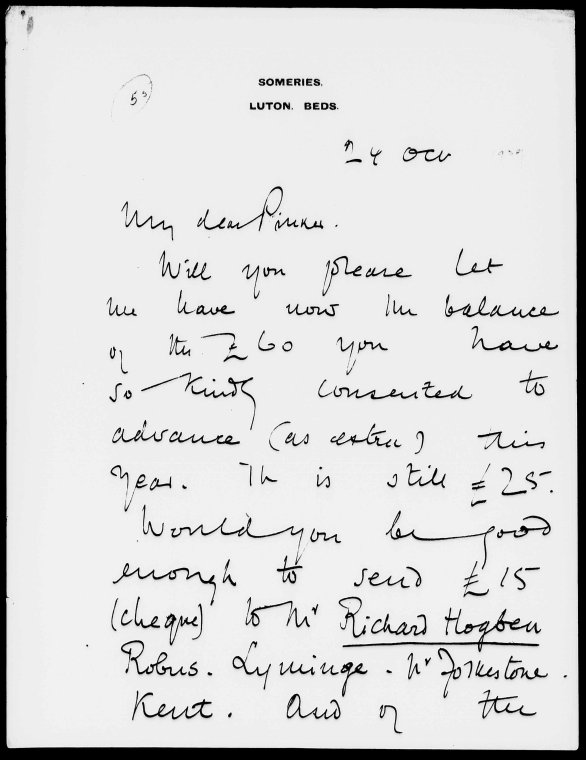 SOMERIES.
LUTON. BEDS.
53
24 Oct
My dear Pinker.
Will you please let
me have now the balance
of the £60 you have
so kindly consented to
advance (as extra) this
year. It is still £25.
Would you be good
enough to send £15
(cheque) to Mr Richard Hogben
Robus. Lyminge. Nr Folkestone.
Kent. And of the